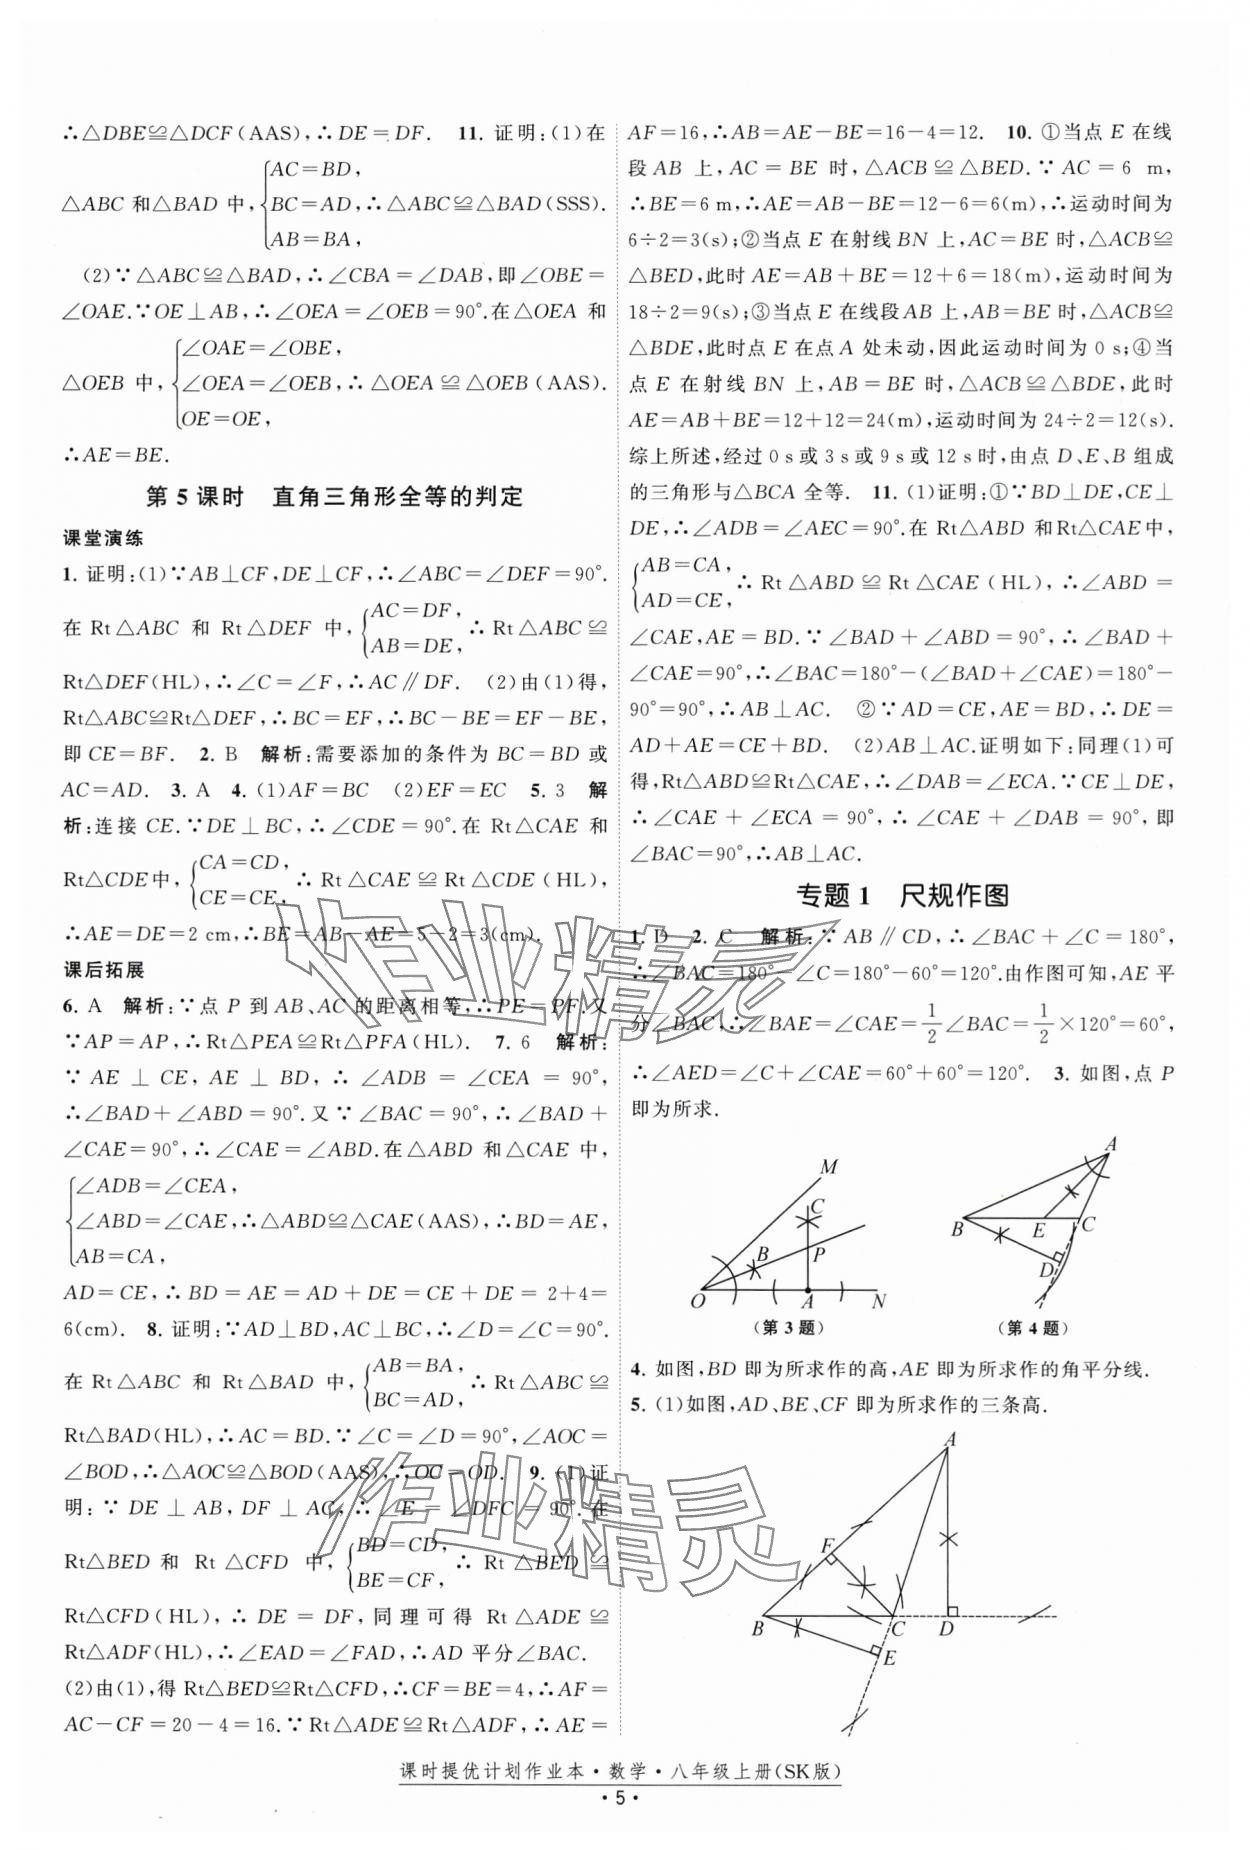 ∴△DBE≌△DCF(AAS),∴DE=DF. 11. 证明:(1)在
△ABC 和△BAD 中,{AC=BD, BC=AD, AB=BA, ∴△ABC≌△BAD(SSS).
(2)∵△ABC≌△BAD,∴∠CBA=∠DAB,即∠OBE=
∠OAE.∵OE⊥AB,∴∠OEA=∠OEB=90°.在△OEA 和
△OEB 中,{∠OAE=∠OBE, ∠OEA=∠OEB, OE=OE, ∴△OEA≌△OEB(AAS).
∴AE=BE.
第 5 课时 直角三角形全等的判定
课堂演练
1. 证明:(1)∵AB⊥CF,DE⊥CF,∴∠ABC=∠DEF=90°.
在 Rt△ABC 和 Rt△DEF 中,{AC=DF, AB=DE, ∴Rt△ABC≌
Rt△DEF(HL),∴∠C=∠F,∴AC∥DF. (2)由(1)得,
Rt△ABC≌Rt△DEF,∴BC=EF,∴BC-BE=EF-BE,
即 CE=BF. 2. B 解析:需要添加的条件为 BC=BD 或
AC=AD. 3. A 4. (1)AF=BC (2)EF=EC 5. 3 解
析:连接 CE.∵DE⊥BC,∴∠CDE=90°.在 Rt△CAE 和
Rt△CDE中,{CA=CD, CE=CE, ∴Rt△CAE≌Rt△CDE(HL),
∴AE=DE=2 cm,∴BE=AB-AE=5-2=3(cm).
课后拓展
6. A 解析:∵点 P 到 AB、AC 的距离相等,∴PE=PF.又
∵AP=AP,∴Rt△PEA≌Rt△PFA(HL). 7. 6 解析:
∵AE⊥CE,AE⊥BD,∴∠ADB=∠CEA=90°,
∴∠BAD+∠ABD=90°.又∵∠BAC=90°,∴∠BAD+
∠CAE=90°,∴∠CAE=∠ABD.在△ABD 和△CAE 中,
{∠ADB=∠CEA, ∠ABD=∠CAE, AB=CA, ∴△ABD≌△CAE(AAS),∴BD=AE,
AD=CE,∴BD=AE=AD+DE=CE+DE=2+4=
6(cm). 8. 证明:∵AD⊥BD,AC⊥BC,∴∠D=∠C=90°.
在 Rt△ABC 和 Rt△BAD 中,{AB=BA, BC=AD, ∴Rt△ABC≌
Rt△BAD(HL),∴AC=BD.∵∠C=∠D=90°,∠AOC=
∠BOD,∴△AOC≌△BOD(AAS),∴OC=OD. 9. (1)证
明:∵DE⊥AB,DF⊥AC,∴∠E=∠DFC=90°.在
Rt△BED 和 Rt△CFD 中,{BD=CD, BE=CF, ∴Rt△BED≌
Rt△CFD(HL),∴DE=DF,同理可得 Rt△ADE≌
Rt△ADF(HL),∴∠EAD=∠FAD,∴AD 平分∠BAC.
(2)由(1),得 Rt△BED≌Rt△CFD,∴CF=BE=4,∴AF=
AC-CF=20-4=16.∵Rt△ADE≌Rt△ADF,∴AE=
AF=16,∴AB=AE-BE=16-4=12. 10. ①当点 E 在线
段 AB 上,AC=BE 时,△ACB≌△BED.∵AC=6 m,
∴BE=6 m,∴AE=AB-BE=12-6=6(m),∴运动时间为
6÷2=3(s);②当点 E 在射线 BN 上,AC=BE 时,△ACB≌
△BED,此时 AE=AB+BE=12+6=18(m),运动时间为
18÷2=9(s);③当点 E 在线段AB 上,AB=BE 时,△ACB≌
△BDE,此时点 E 在点 A 处未动,因此运动时间为 0 s;④当
点 E 在射线 BN 上,AB=BE 时,△ACB≌△BDE,此时
AE=AB+BE=12+12=24(m),运动时间为 24÷2=12(s).
综上所述,经过 0 s或 3 s或 9 s或 12 s时,由点 D、E、B 组成
的三角形与△BCA 全等. 11. (1)证明:①∵BD⊥DE,CE⊥
DE,∴∠ADB=∠AEC=90°.在 Rt△ABD 和Rt△CAE中,
{AB=CA, AD=CE, ∴Rt△ABD≌Rt△CAE(HL),∴∠ABD=
∠CAE,AE=BD.∵∠BAD+∠ABD=90°,∴∠BAD+
∠CAE=90°,∴∠BAC=180°-(∠BAD+∠CAE)=180°-
90°=90°,∴AB⊥AC. ②∵AD=CE,AE=BD,∴DE=
AD+AE=CE+BD. (2)AB⊥AC.证明如下:同理(1)可
得,Rt△ABD≌Rt△CAE,∴∠DAB=∠ECA.∵CE⊥DE,
∴∠CAE+∠ECA=90°,∴∠CAE+∠DAB=90°,即
∠BAC=90°,∴AB⊥AC.
专题 1 尺规作图
1. D 2. C 解析:∵AB∥CD,∴∠BAC+∠C=180°,
∴∠BAC=180°-∠C=180°-60°=120°.由作图可知,AE 平
分∠BAC,∴∠BAE=∠CAE=1/2∠BAC=1/2×120°=60°,
∴∠AED=∠C+∠CAE=60°+60°=120°. 3. 如图,点 P
即为所求.
M C B P O A N
(第 3 题)
A B E C D
(第 4 题)
4. 如图,BD 即为所求作的高,AE 即为所求作的角平分线.
5. (1)如图,AD、BE、CF 即为所求作的三条高.
A F B C D E
作业精灵
作业精灵
课时提优计划作业本·数学·八年级上册(SK版)
·5·